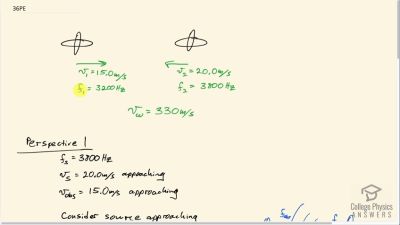 36PE
v₁ = 15.0 m/s
v₂ = 20.0 m/s
f₁ = 3200 Hz
f₂ = 3800 Hz
v_w = 330 m/s
Perspective 1
f_s = 3800 Hz
v_s = 20.0 m/s approaching
v_obs = 15.0 m/s approaching
Consider source approaching
College Physics
ANSWERS